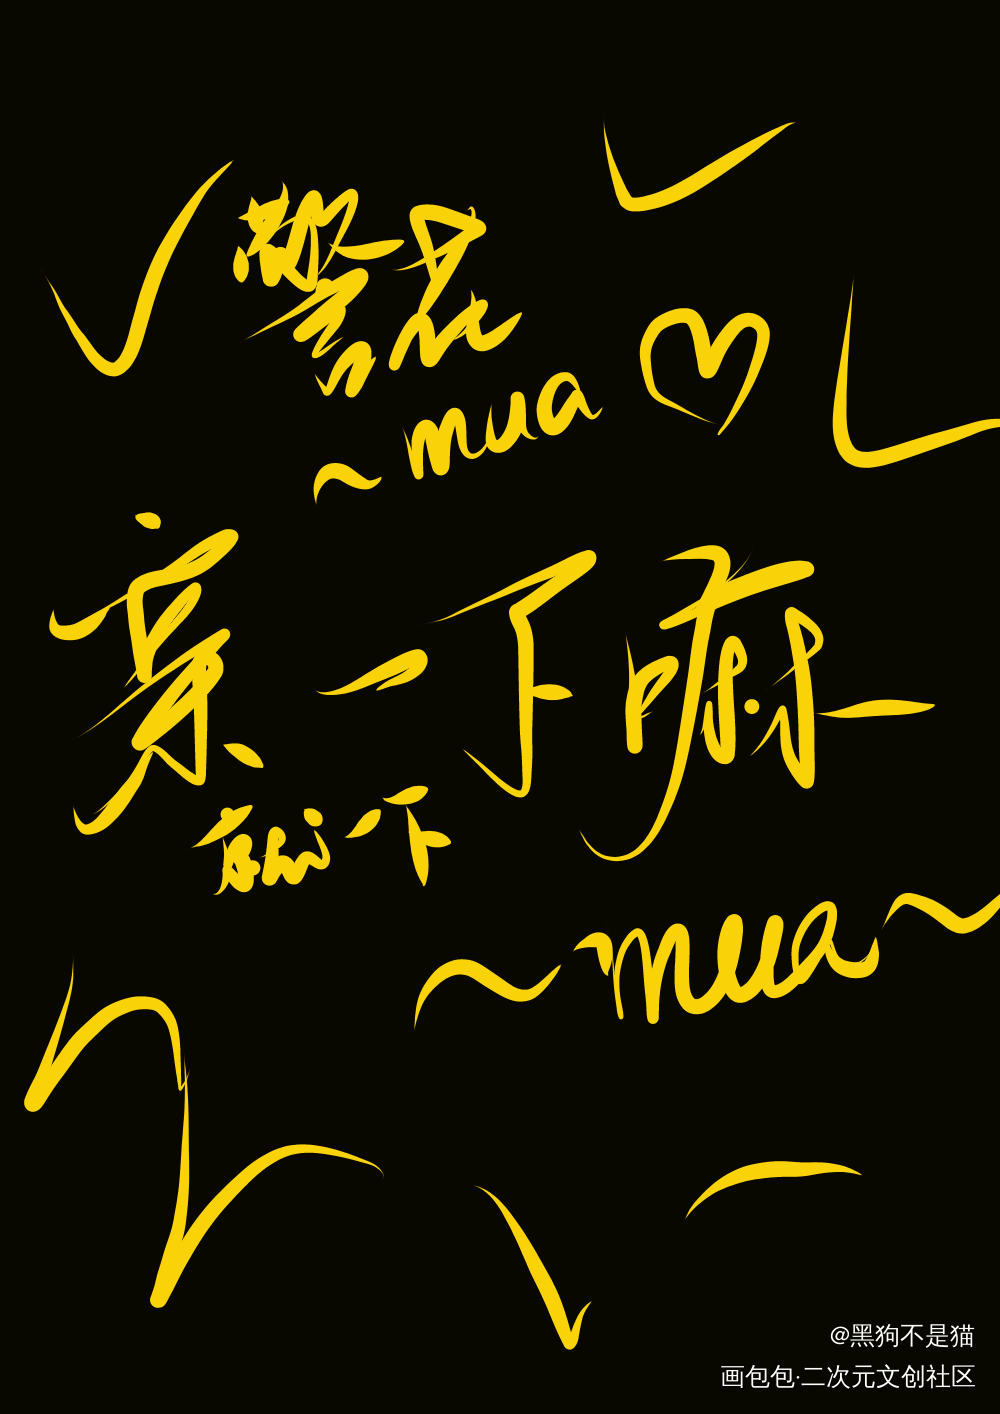 警花
~mua
亲一下嘛
就一下
~mua~
@黑狗不是猫
画包包·二次元文创社区